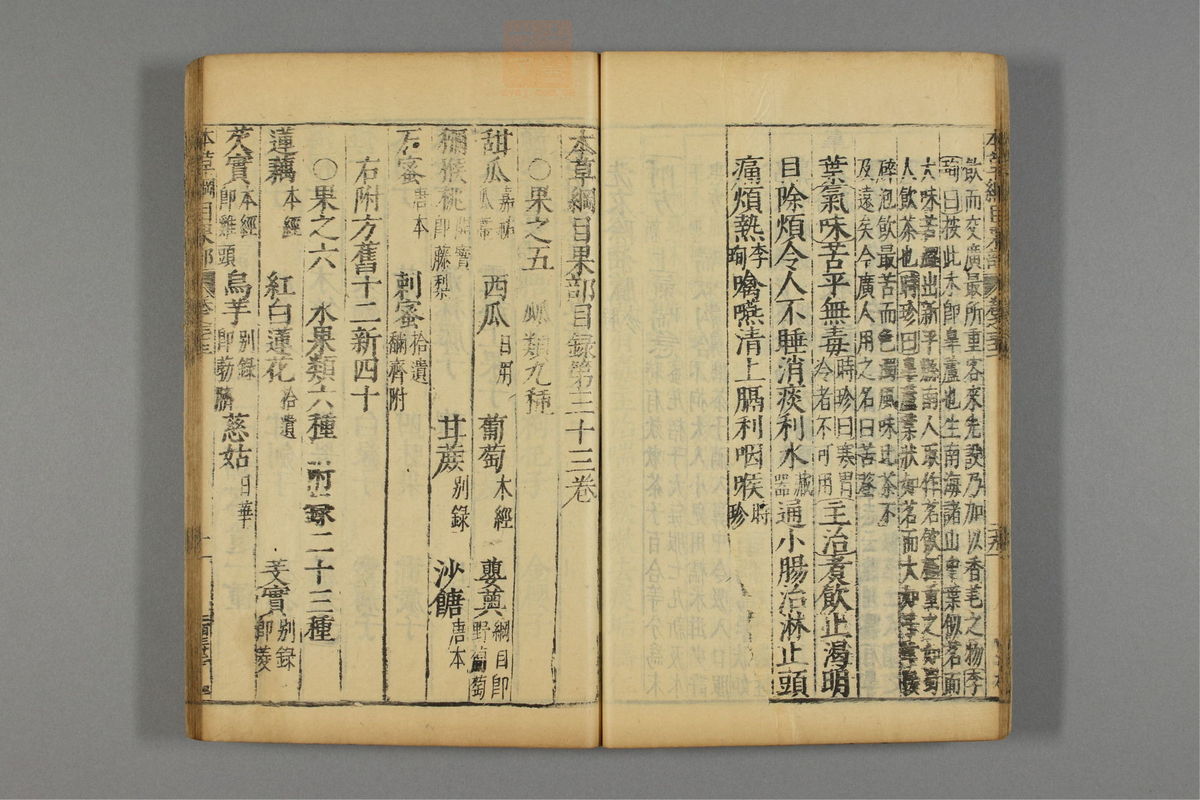 飲而交廣最所重客來先設乃加以香芼之物李
珣曰按此木即皐蘆也生南海諸山中葉似茗而
大味苦澀出新平縣南人取作茗飲極重之如蜀
人飲茶也時珍曰皐蘆葉狀如茗而大如手掌挼
碎泡飲最苦而色濁風味比茶不
及遠矣今廣人用之名曰苦䔲
葉氣味苦平無毒時珍曰寒胃
冷者不可用主治煮飲止渴明
目除煩令人不睡消痰利水藏器通小腸治淋止頭
痛煩熱李珣噙嚥清上膈利咽喉時珍
本草綱目果部目錄第三十三卷
○果之五 蓏類九種
甜瓜嘉祐瓜蔕 西瓜日用 葡萄本經 蘡薁綱目即野葡萄
獼猴桃開寶即藤梨 甘蔗別錄 沙餹唐本
石蜜唐本 刺蜜拾遺䣛齊附
右附方舊十二新四十
○果之六 水果類六種 附錄二十三種
蓮藕本經 紅白蓮花拾遺 芰實別錄即菱
芡實本經即雞頭 烏芋別錄即葧臍 慈姑日華
本草綱目果部